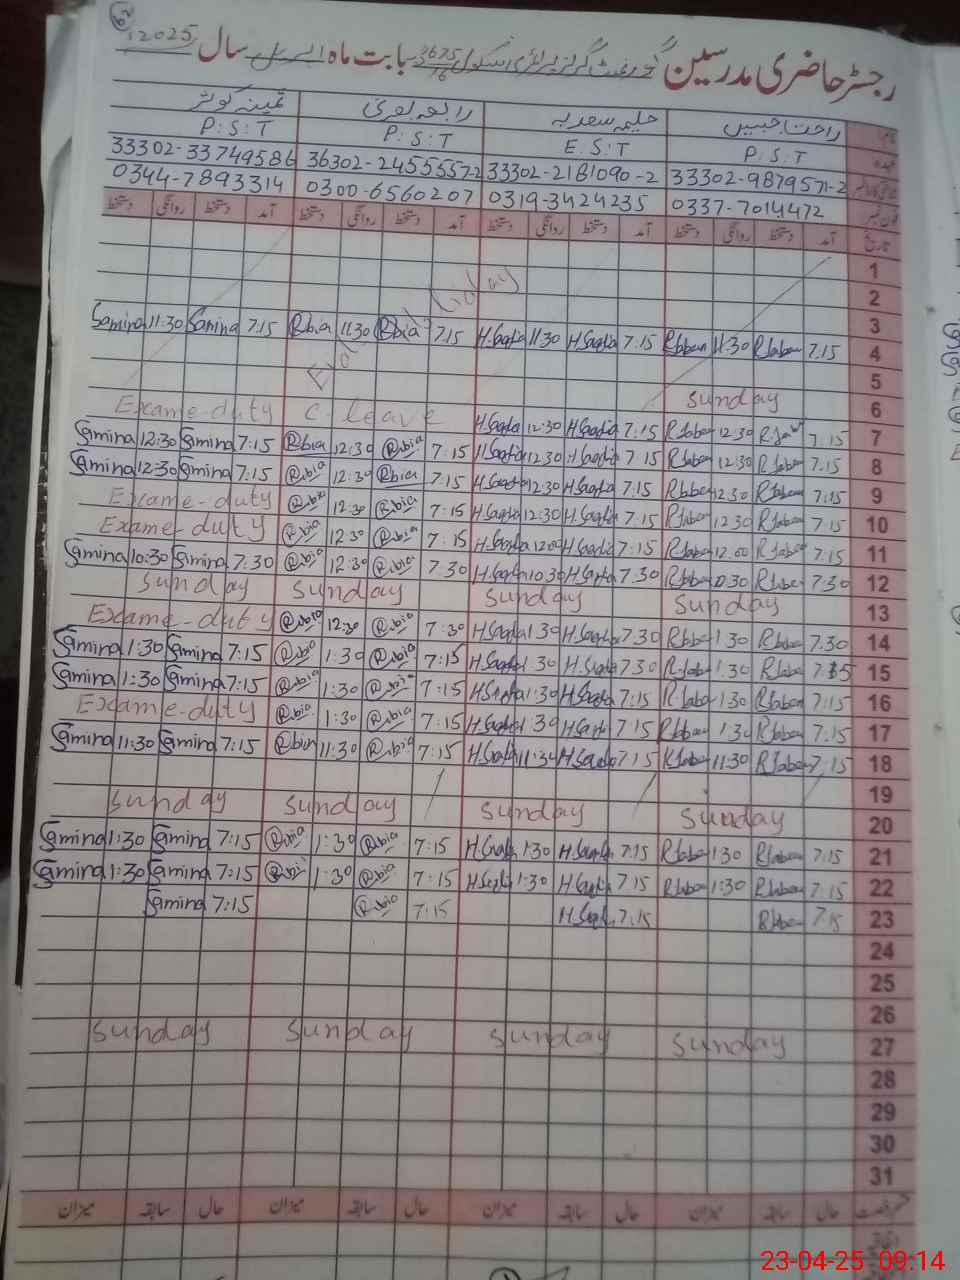 62
رجسٹر حاضری مدرسین گورنمنٹ گرلز پرائری سکول 3675/16 بابت ماہ اپریل سال 2025
نام راحت جبیں حلیمہ سعدیہ رابعہ بصری ثمینہ کوثر
عہدہ P:S:T E:S:T P:S:T P:S:T
33302-9879571-2 33302-2181090-2 36302-2455557-2 33302-33749586
فون نمبر 0337-7014472 0319-3424235 0300-6560207 0344-7893314
تاریخ آمد دستخط روانگی دستخط آمد دستخط روانگی دستخط آمد دستخط روانگی دستخط آمد دستخط روانگی دستخط
1
2
3
Samina 11:30 Samina 7:15 Rbia 11:30 Rbia 7:15 H.Sadia 11:30 H.Sadia 7:15 RJaben 11:30 RJaben 7:15 4
5
Sunday 6
Exame-duty C-leave H.Sadia 12:30 H.Sadia 7:15 RJaben 12:30 R.Jaben 7:15 7
Samina 12:30 Samina 7:15 Rbia 12:30 Rbia 7:15 H.Sadia 12:30 H.Sadia 7:15 RJaben 12:30 RJaben 7:15 8
Samina 12:30 Samina 7:15 Rbia 12:30 Rbia 7:15 H.Sadia 12:30 H.Sadia 7:15 RJaben 12:30 RJaben 7:15 9
Exame-duty Rbia 12:30 Rbia 7:15 H.Sadia 12:30 H.Sadia 7:15 RJaben 12:30 RJaben 7:15 10
Exame-duty Rbia 12:30 Rbia 7:15 H.Sadia 12:00 H.Sadia 7:15 RJaben 12:00 RJaben 7:15 11
Samina 10:30 Samina 7:30 Rbia 12:30 Rbia 7:30 H.Sadia 10:30 H.Sadia 7:30 RJaben 10:30 RJaben 7:30 12
Sunday Sunday Sunday Sunday 13
Exame-duty Rbia 12:30 Rbia 7:30 H.Sadia 1:30 H.Sadia 7:30 RJaben 1:30 RJaben 7:30 14
Samina 1:30 Samina 7:15 Rbia 1:30 Rbia 7:15 H.Sadia 1:30 H.Sadia 7:30 RJaben 1:30 RJaben 7:15 15
Samina 1:30 Samina 7:15 Rbia 1:30 Rbia 7:15 H.Sadia 1:30 H.Sadia 7:15 RJaben 1:30 RJaben 7:15 16
Exame-duty Rbia 1:30 Rbia 7:15 H.Sadia 1:30 H.Sadia 7:15 RJaben 1:30 RJaben 7:15 17
Samina 11:30 Samina 7:15 Rbia 11:30 Rbia 7:15 H.Sadia 11:30 H.Sadia 7:15 RJaben 11:30 RJaben 7:15 18
19
Sunday Sunday Sunday Sunday 20
Samina 1:30 Samina 7:15 Rbia 1:30 Rbia 7:15 H.Sadia 1:30 H.Sadia 7:15 RJaben 1:30 RJaben 7:15 21
Samina 1:30 Samina 7:15 Rbia 1:30 Rbia 7:15 H.Sadia 1:30 H.Sadia 7:15 RJaben 1:30 RJaben 7:15 22
Samina 7:15 Rbia 7:15 H.Sadia 7:15 RJaben 7:15 23
24
25
26
Sunday Sunday Sunday Sunday 27
28
29
30
31
حال سابقہ میزان حال سابقہ میزان حال سابقہ میزان حال سابقہ میزان
23-04-25 09:14